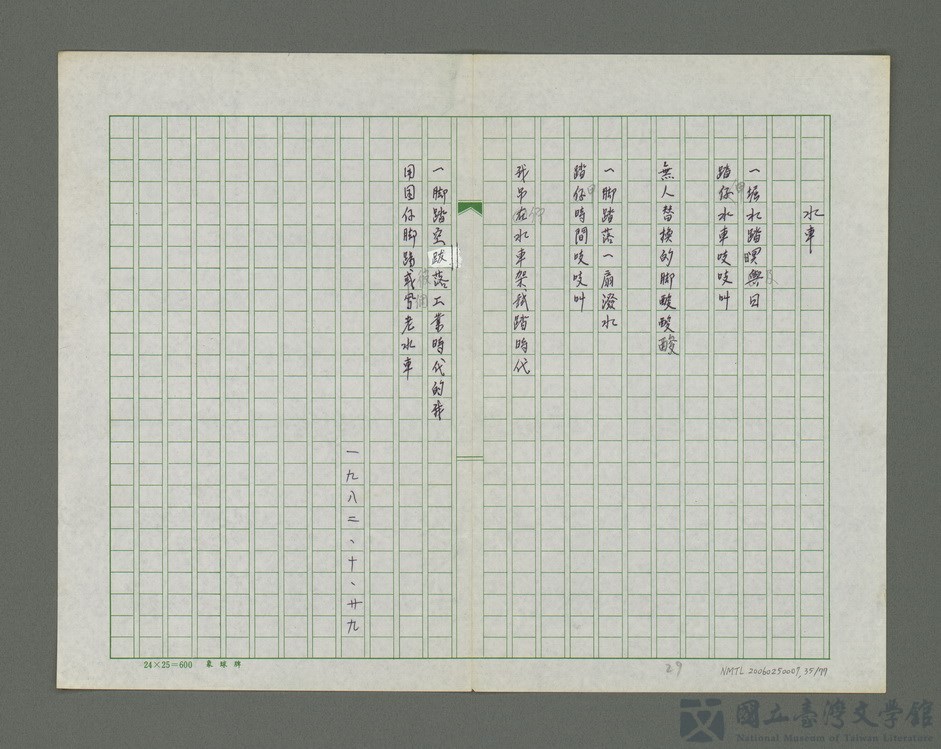 水車
一堀水踏暝與日
踏仔水車吱吱叫
無人替換的脚酸酸酸
一脚踏落一扇潑水
踏仔時間吱吱叫
我吊在水車架我踏時代
一脚踏空跋落工業時代的
用囝仔脚踏或
老水車
一九八二、十、廿九
24×25=600 象球牌
29
NMTL 20060250007, 35/77
國立臺灣文學館
National Museum of Taiwan Literature